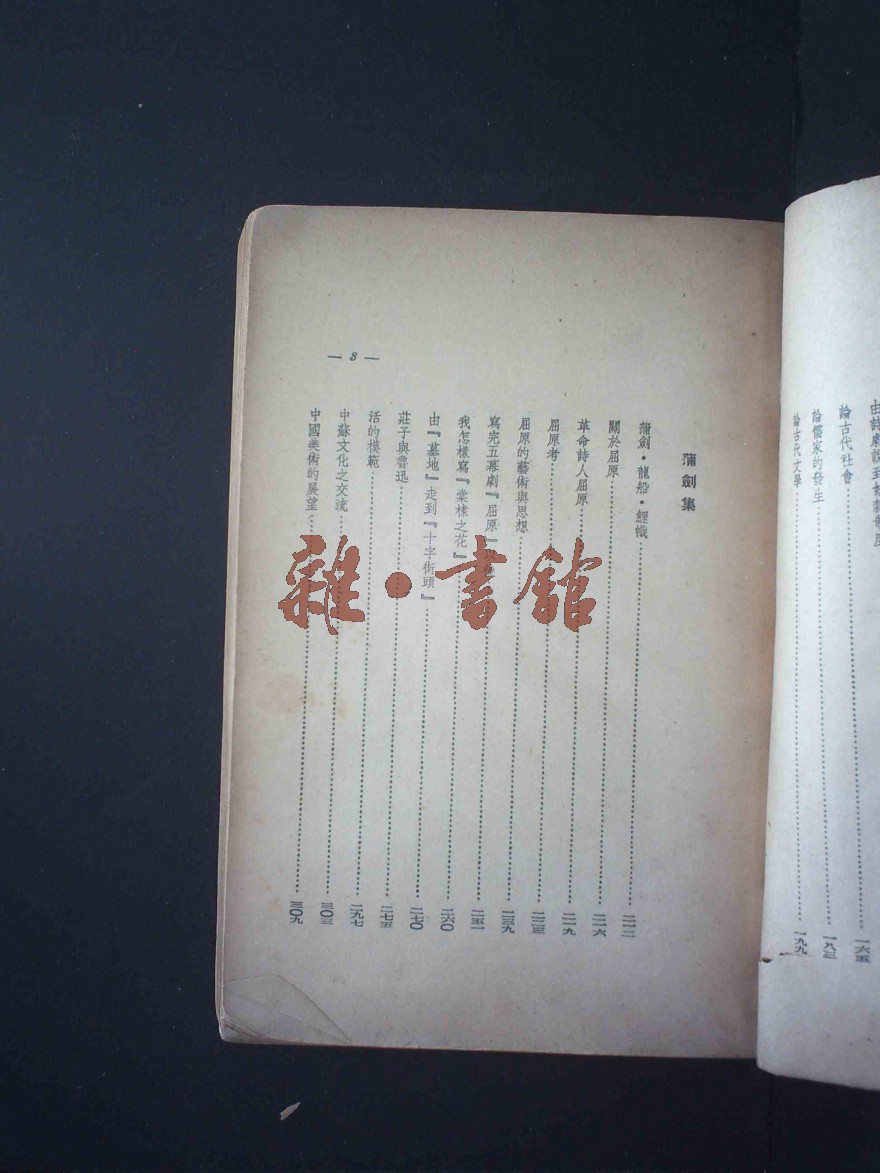 論古代社會……一六五
論儒家的發生……一八三
論古代文學……一九九
蒲劍集
蒲劍·龍船·鯉幟……二一二
關於屈原……二一六
革命詩人屈原……二一九
屈原考……二二三
屈原的藝術與思想……二三九
寫完五幕劇『屈原』……二五一
我怎樣寫『棠棣之花』……二六〇
由『墓地』走到『十字街頭』……二七〇
莊子與魯迅……二七五
活的模範……二九七
中蘇文化之交流……三〇三
中國美術的展望……三〇九
— 3 —
雜·書館